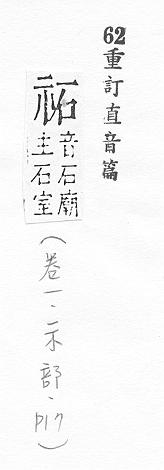 62重訂直音篇
祏
音石廟
主石室
(卷一、示部、P17)